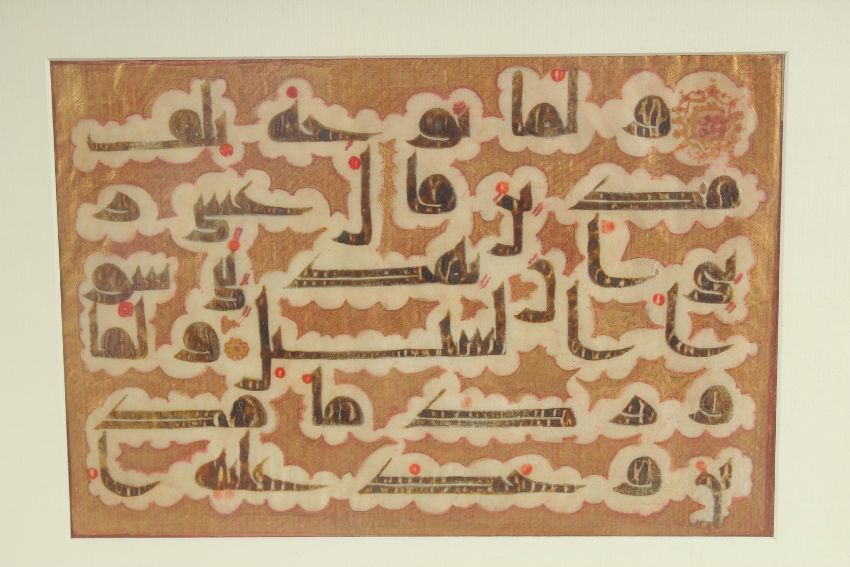 ولما توجه تلقا
مدين قال عسى ر
بي ان يهديني سو
ا السبيل ولما
ورد ما مد
ين وجد عليه ا